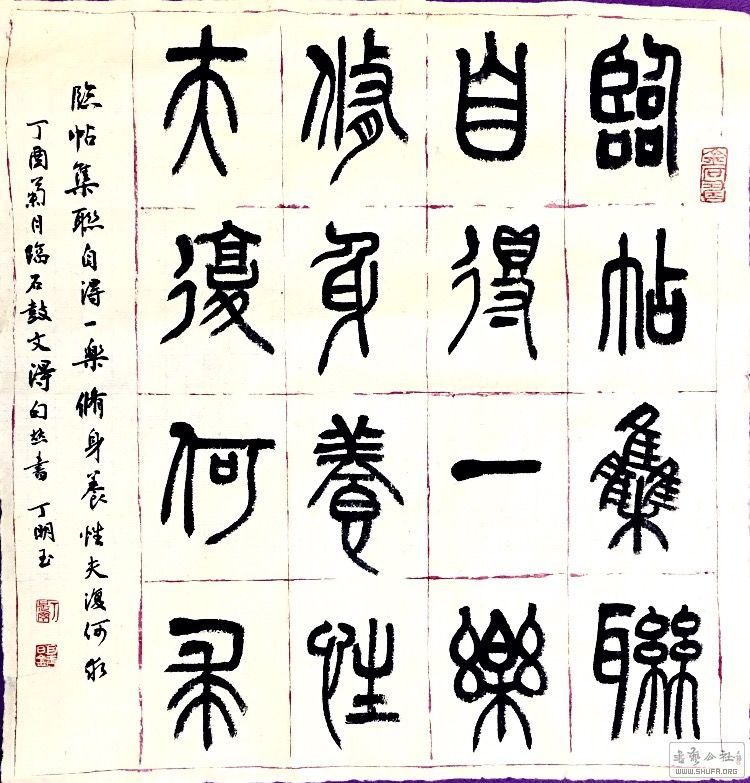 臨帖集聯
自得一樂
脩身養性
夫復何求
臨帖集聯自得一樂脩身養性夫復何求
丁酉菊月臨石鼓文得句並書 丁明玉
WWW.SHUFA.ORG